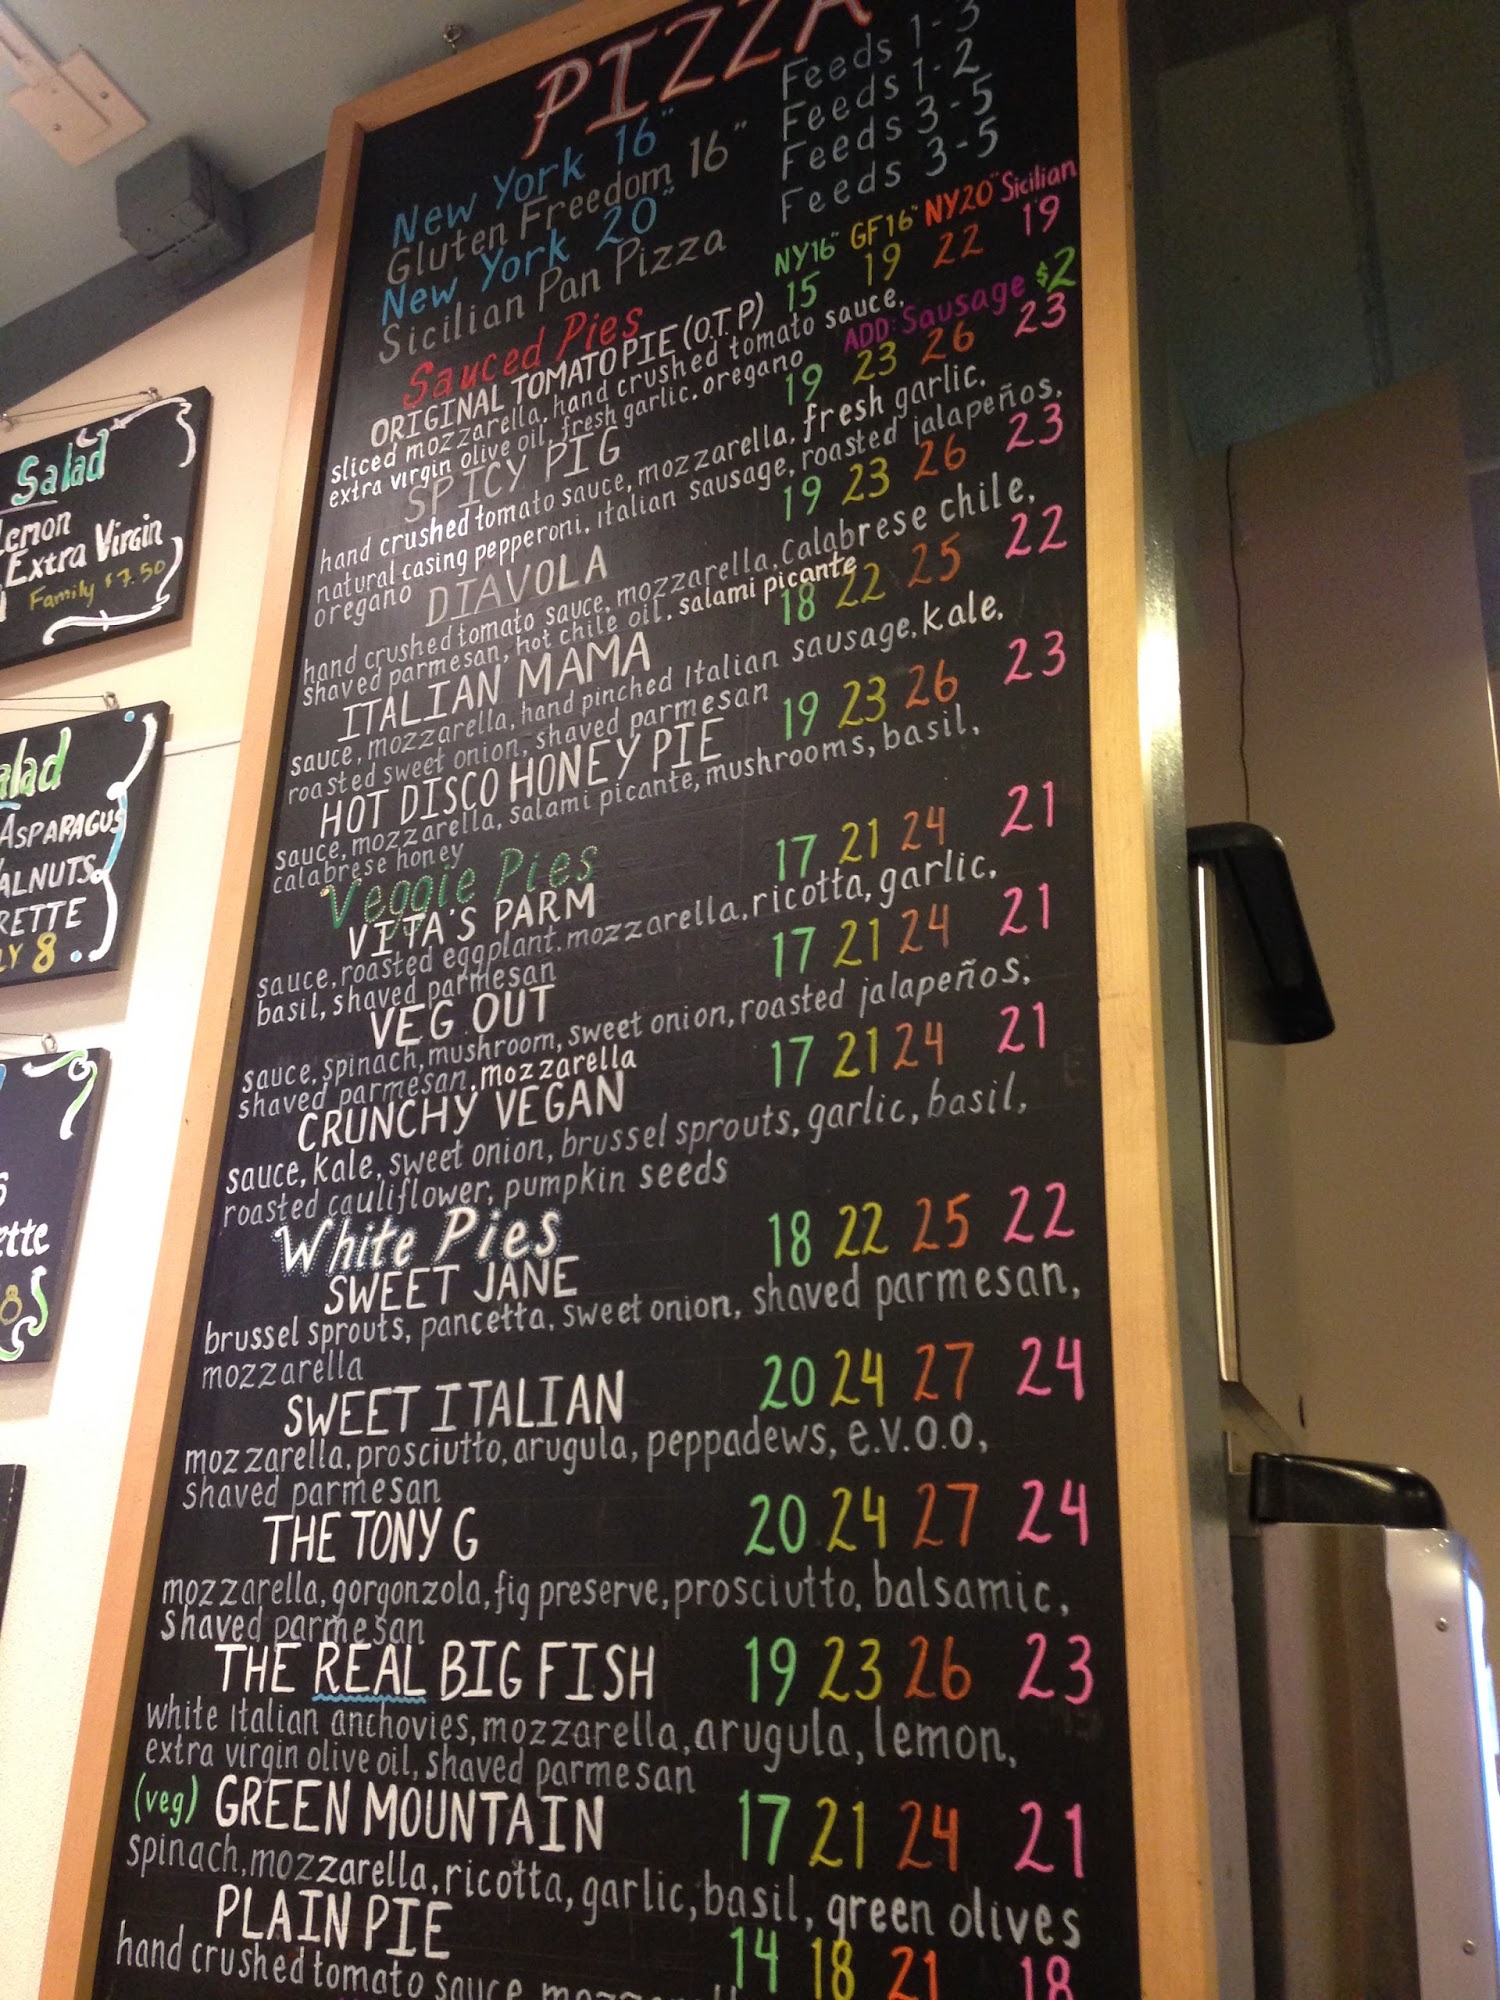 PIZZA
New York 16" Feeds 1-3
Gluten Freedom 16" Feeds 1-2
New York 20" Feeds 3-5
Sicilian Pan Pizza Feeds 3-5
NY16" GF16" NY20" Sicilian
Sauced Pies
ORIGINAL TOMATO PIE (O.T.P) 15 19 22 19
sliced mozzarella, hand crushed tomato sauce,
extra virgin olive oil, fresh garlic, oregano
ADD: Sausage $2
SPICY PIG 19 23 26 23
hand crushed tomato sauce, mozzarella, fresh garlic,
natural casing pepperoni, Italian sausage, roasted jalapeños,
oregano
DIAVOLA 19 23 26 23
hand crushed tomato sauce, mozzarella, Calabrese chile,
shaved parmesan, hot chile oil, salami picante
ITALIAN MAMA 18 22 25 22
sauce, mozzarella, hand pinched Italian sausage, kale,
roasted sweet onion, shaved parmesan
HOT DISCO HONEY PIE 19 23 26 23
sauce, mozzarella, salami picante, mushrooms, basil,
calabrese honey
Veggie Pies
VITA'S PARM 17 21 24 21
sauce, roasted eggplant, mozzarella, ricotta, garlic,
basil, shaved parmesan
VEG OUT 17 21 24 21
sauce, spinach, mushroom, sweet onion, roasted jalapeños,
shaved parmesan, mozzarella
CRUNCHY VEGAN 17 21 24 21
sauce, kale, sweet onion, brussel sprouts, garlic, basil,
roasted cauliflower, pumpkin seeds
White Pies
SWEET JANE 18 22 25 22
brussel sprouts, pancetta, sweet onion, shaved parmesan,
mozzarella
SWEET ITALIAN 20 24 27 24
mozzarella, prosciutto, arugula, peppadews, e.v.o.o,
shaved parmesan
THE TONY G 20 24 27 24
mozzarella, gorgonzola, fig preserve, prosciutto, balsamic,
shaved parmesan
THE REAL BIG FISH 19 23 26 23
white Italian anchovies, mozzarella, arugula, lemon,
extra virgin olive oil, shaved parmesan
(veg) GREEN MOUNTAIN 17 21 24 21
spinach, mozzarella, ricotta, garlic, basil, green olives
PLAIN PIE 14 18 21 18
hand crushed tomato sauce,
Salad
Lemon
Extra Virgin
Family $7.50
alad
ASPARAGUS
ALNUTS
RETTE
LY 8
ette
8